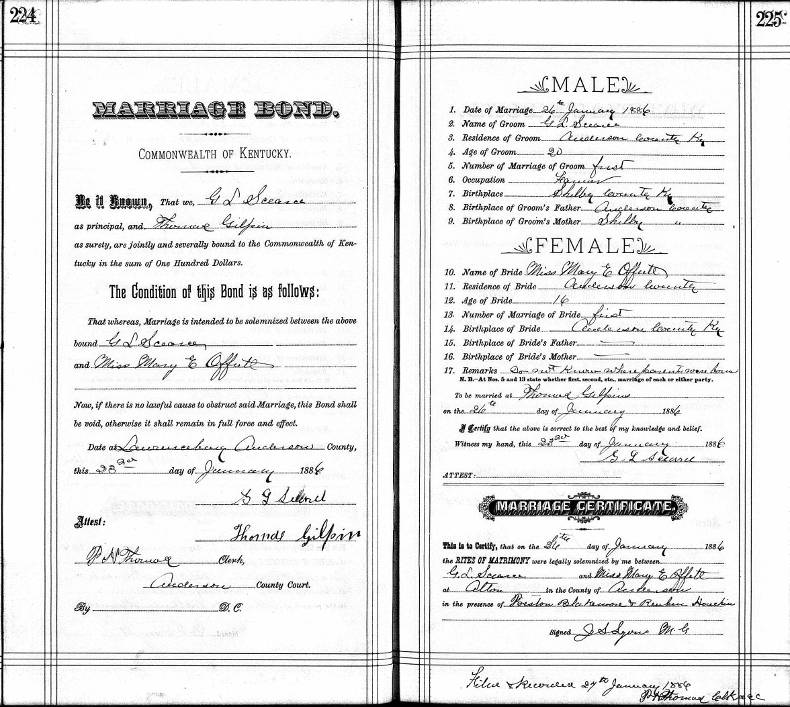 224
MARRIAGE BOND.
COMMONWEALTH OF KENTUCKY.
Be it Known, That we, G L Scearce
as principal, and Thomas Gilpin
as surety, are jointly and severally bound to the Commonwealth of Ken-
tucky in the sum of One Hundred Dollars.
The Condition of this Bond is as follows:
That whereas, Marriage is intended to be solemnized between the above
bound G L Scearce
and Miss Mary E Offutt
Now, if there is no lawful cause to obstruct said Marriage, this Bond shall
be void, otherwise it shall remain in full force and effect.
Date at Lawrenceburg Anderson County,
this 23rd day of January 1886
G L
Thomas Gilpin
Attest:
P. H. Thomas Clerk,
Anderson County Court.
By D. C.
225
MALE
1. Date of Marriage 26th January 1886
2. Name of Groom G L Scearce
3. Residence of Groom Anderson County Ky
4. Age of Groom 20
5. Number of Marriage of Groom first
6. Occupation Farmer
7. Birthplace Shelby County Ky
8. Birthplace of Groom's Father Anderson County
9. Birthplace of Groom's Mother Shelby "
FEMALE
10. Name of Bride Miss Mary E Offutt
11. Residence of Bride Anderson County
12. Age of Bride 16
13. Number of Marriage of Bride first
14. Birthplace of Bride Anderson County Ky
15. Birthplace of Bride's Father —
16. Birthplace of Bride's Mother —
17. Remarks do not know where parents were born
N. B.—At Nos. 5 and 13 state whether first, second, etc., marriage of each or either party.
To be married at Thomas Gilpins
on the 26th day of January 1886
I Certify that the above is correct to the best of my knowledge and belief.
Witness my hand, this 23rd day of January 1886
G L
ATTEST:
MARRIAGE CERTIFICATE.
This is to Certify, that on the 26th day of January 1886
the RITES OF MATRIMONY were legally solemnized by me between
G. L. Scearce and Miss Mary E Offett
at Alton in the County of Anderson
in the presence of Preston Blakemore & Reuben
Signed J S Lyons M. G
Filed & Recorded 27th January 1886
P. H. Thomas Clk